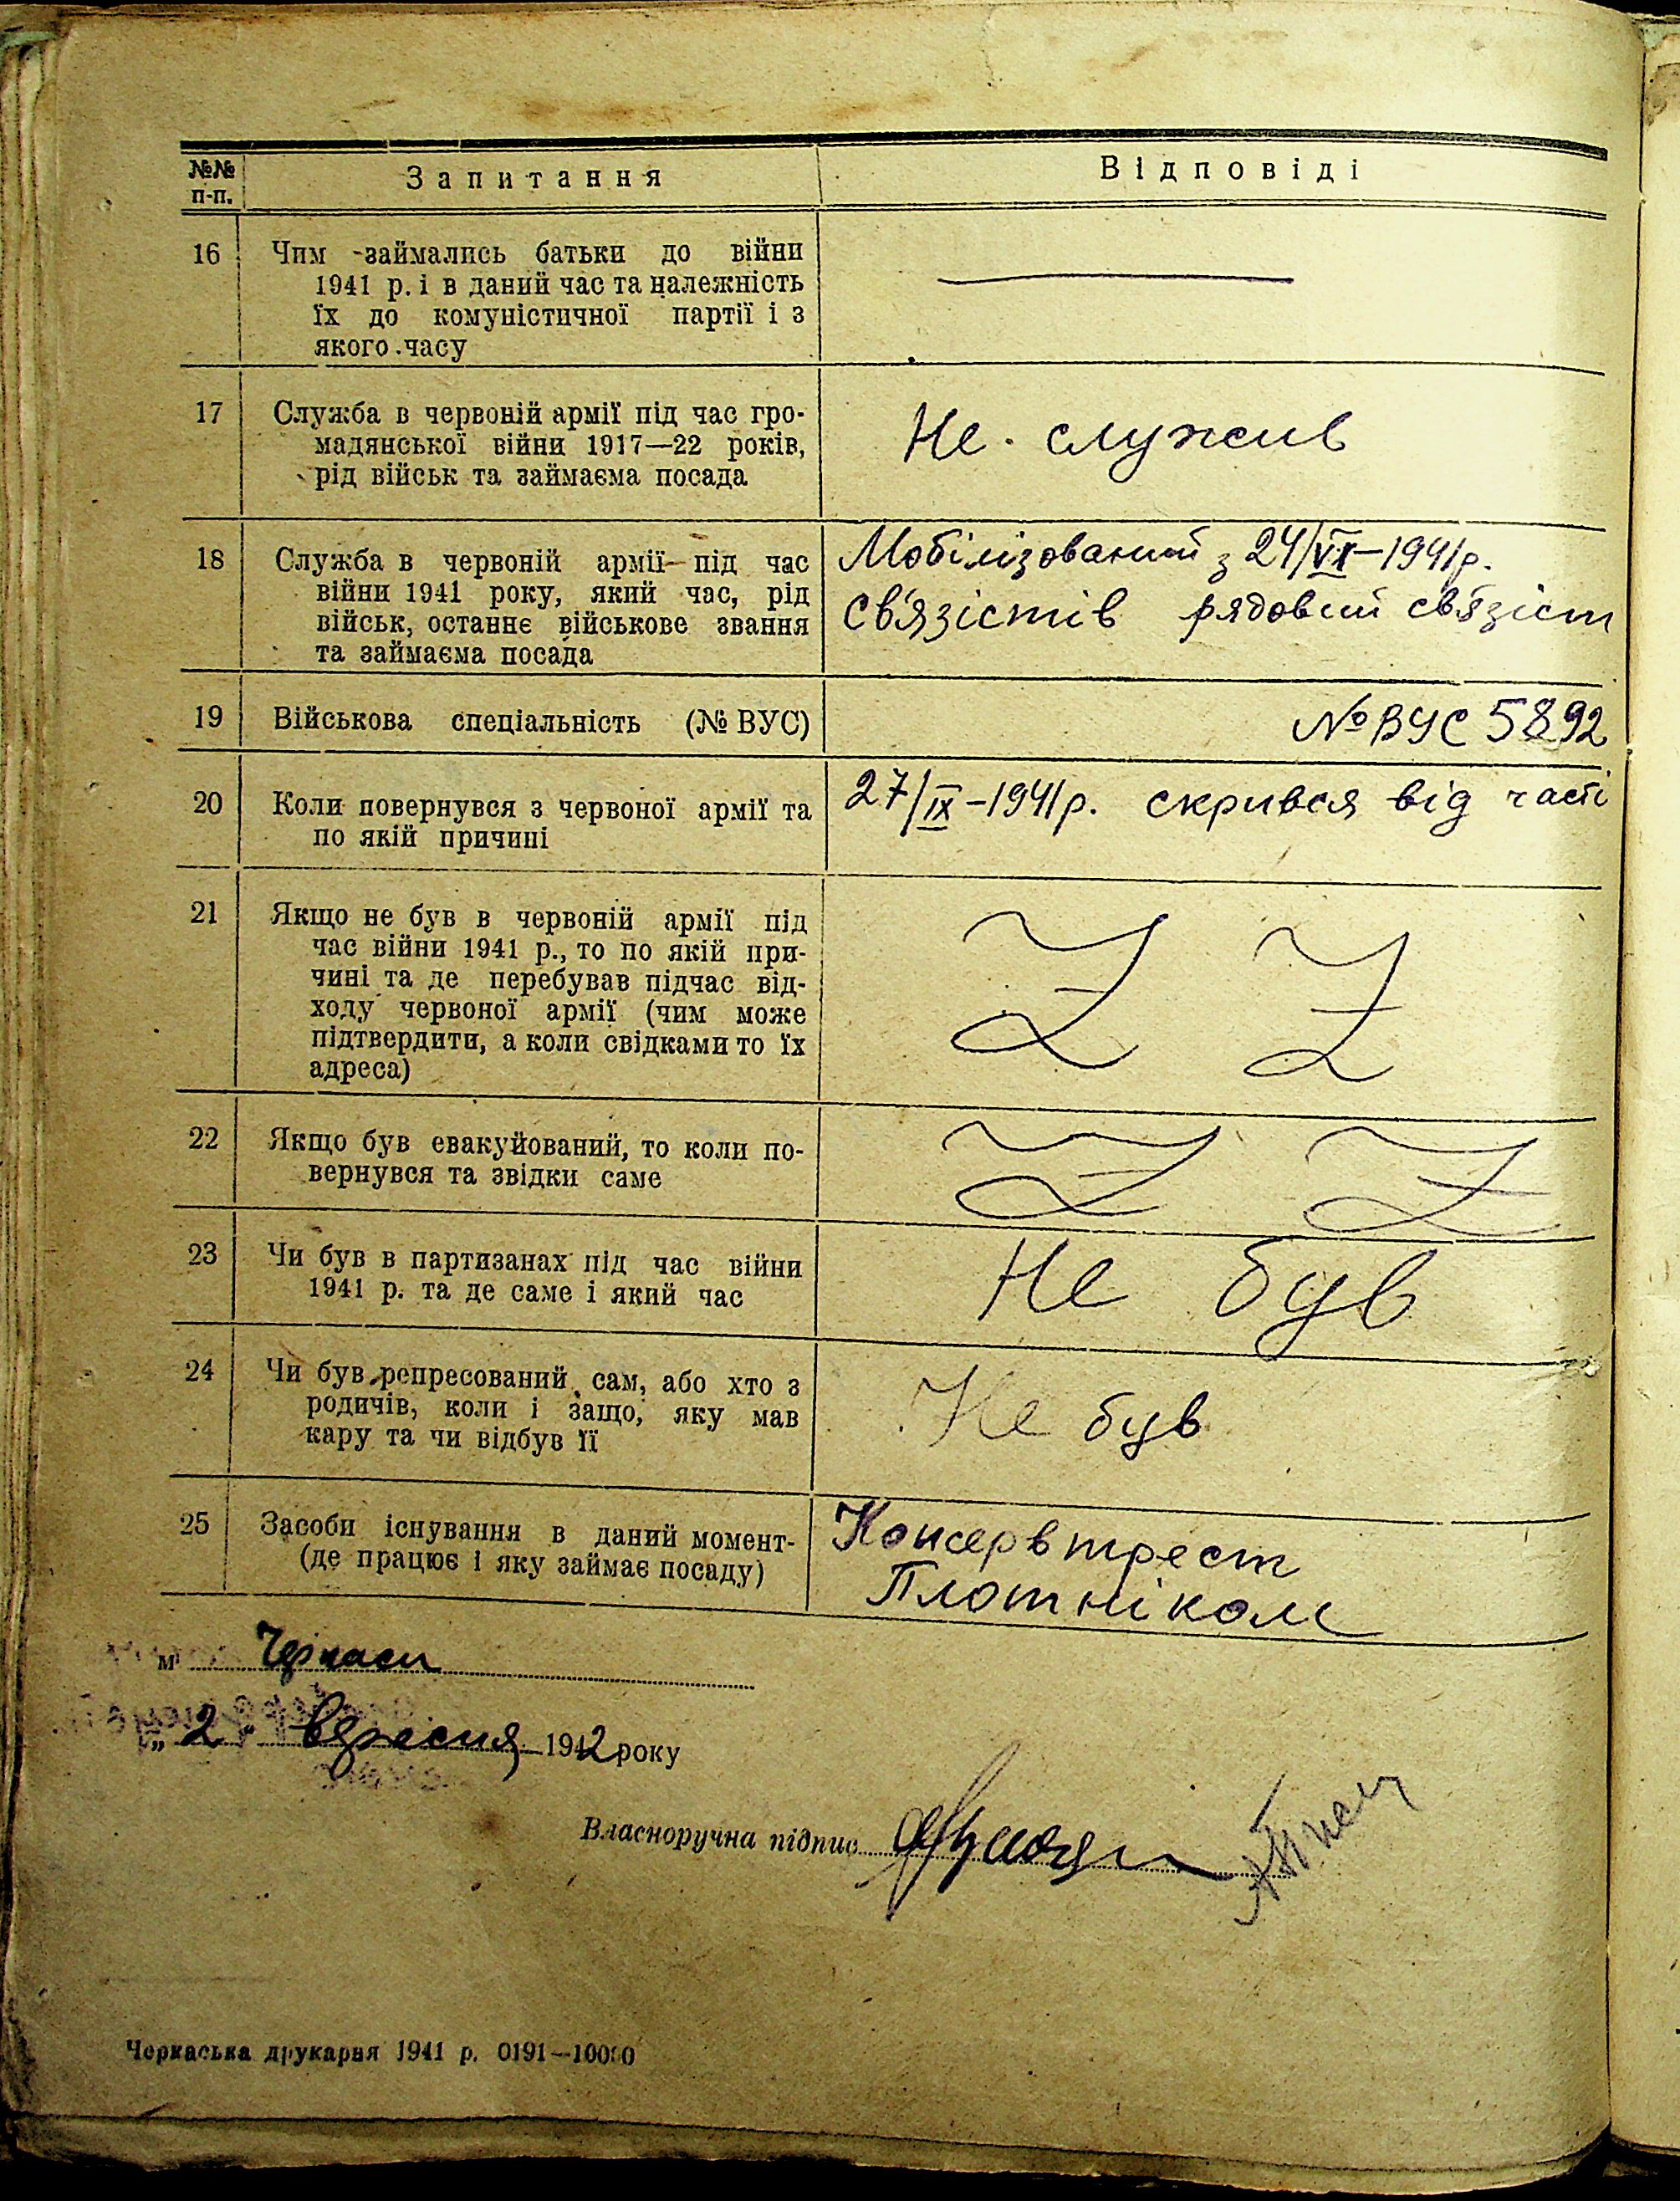 №№ п-п. Запитання Відповіді
16 Чим займались батьки до війни
1941 р. і в даний час та належність
їх до комуністичної партії і з
якого часу
17 Служба в червоній армії під час гро-
мадянської війни 1917—22 років,
рід військ та займаєма посада
Не служив
18 Служба в червоній армії під час
війни 1941 року, який час, рід
військ, останнє військове звання
та займаєма посада
Мобілізований з 24/VI—1941р.
св'язістів рядовий св'язіст
19 Військова спеціальність (№ ВУС)
№ ВУС 5892
20 Коли повернувся з червоної армії та
по якій причині
27/IX-1941р. скрився від часті
21 Якщо не був в червоній армії під
час війни 1941 р., то по якій при-
чині та де перебував підчас від-
ходу червоної армії (чим може
підтвердити, а коли свідками то їх
адреса)
Z Z
22 Якщо був евакуйований, то коли по-
вернувся та звідки саме
Z Z
23 Чи був в партизанах під час війни
1941 р. та де саме і який час
Не був
24 Чи був репресований сам, або хто з
родичів, коли і защо, яку мав
кару та чи відбув її
Не був
25 Засоби існування в даний момент-
(де працює і яку займає посаду)
Консервтрест
Плотніком
м Черкаси
„2. вересня 1942 року
Власноручна підпис
Черкаська друкарня 1941 р. 0191—10000